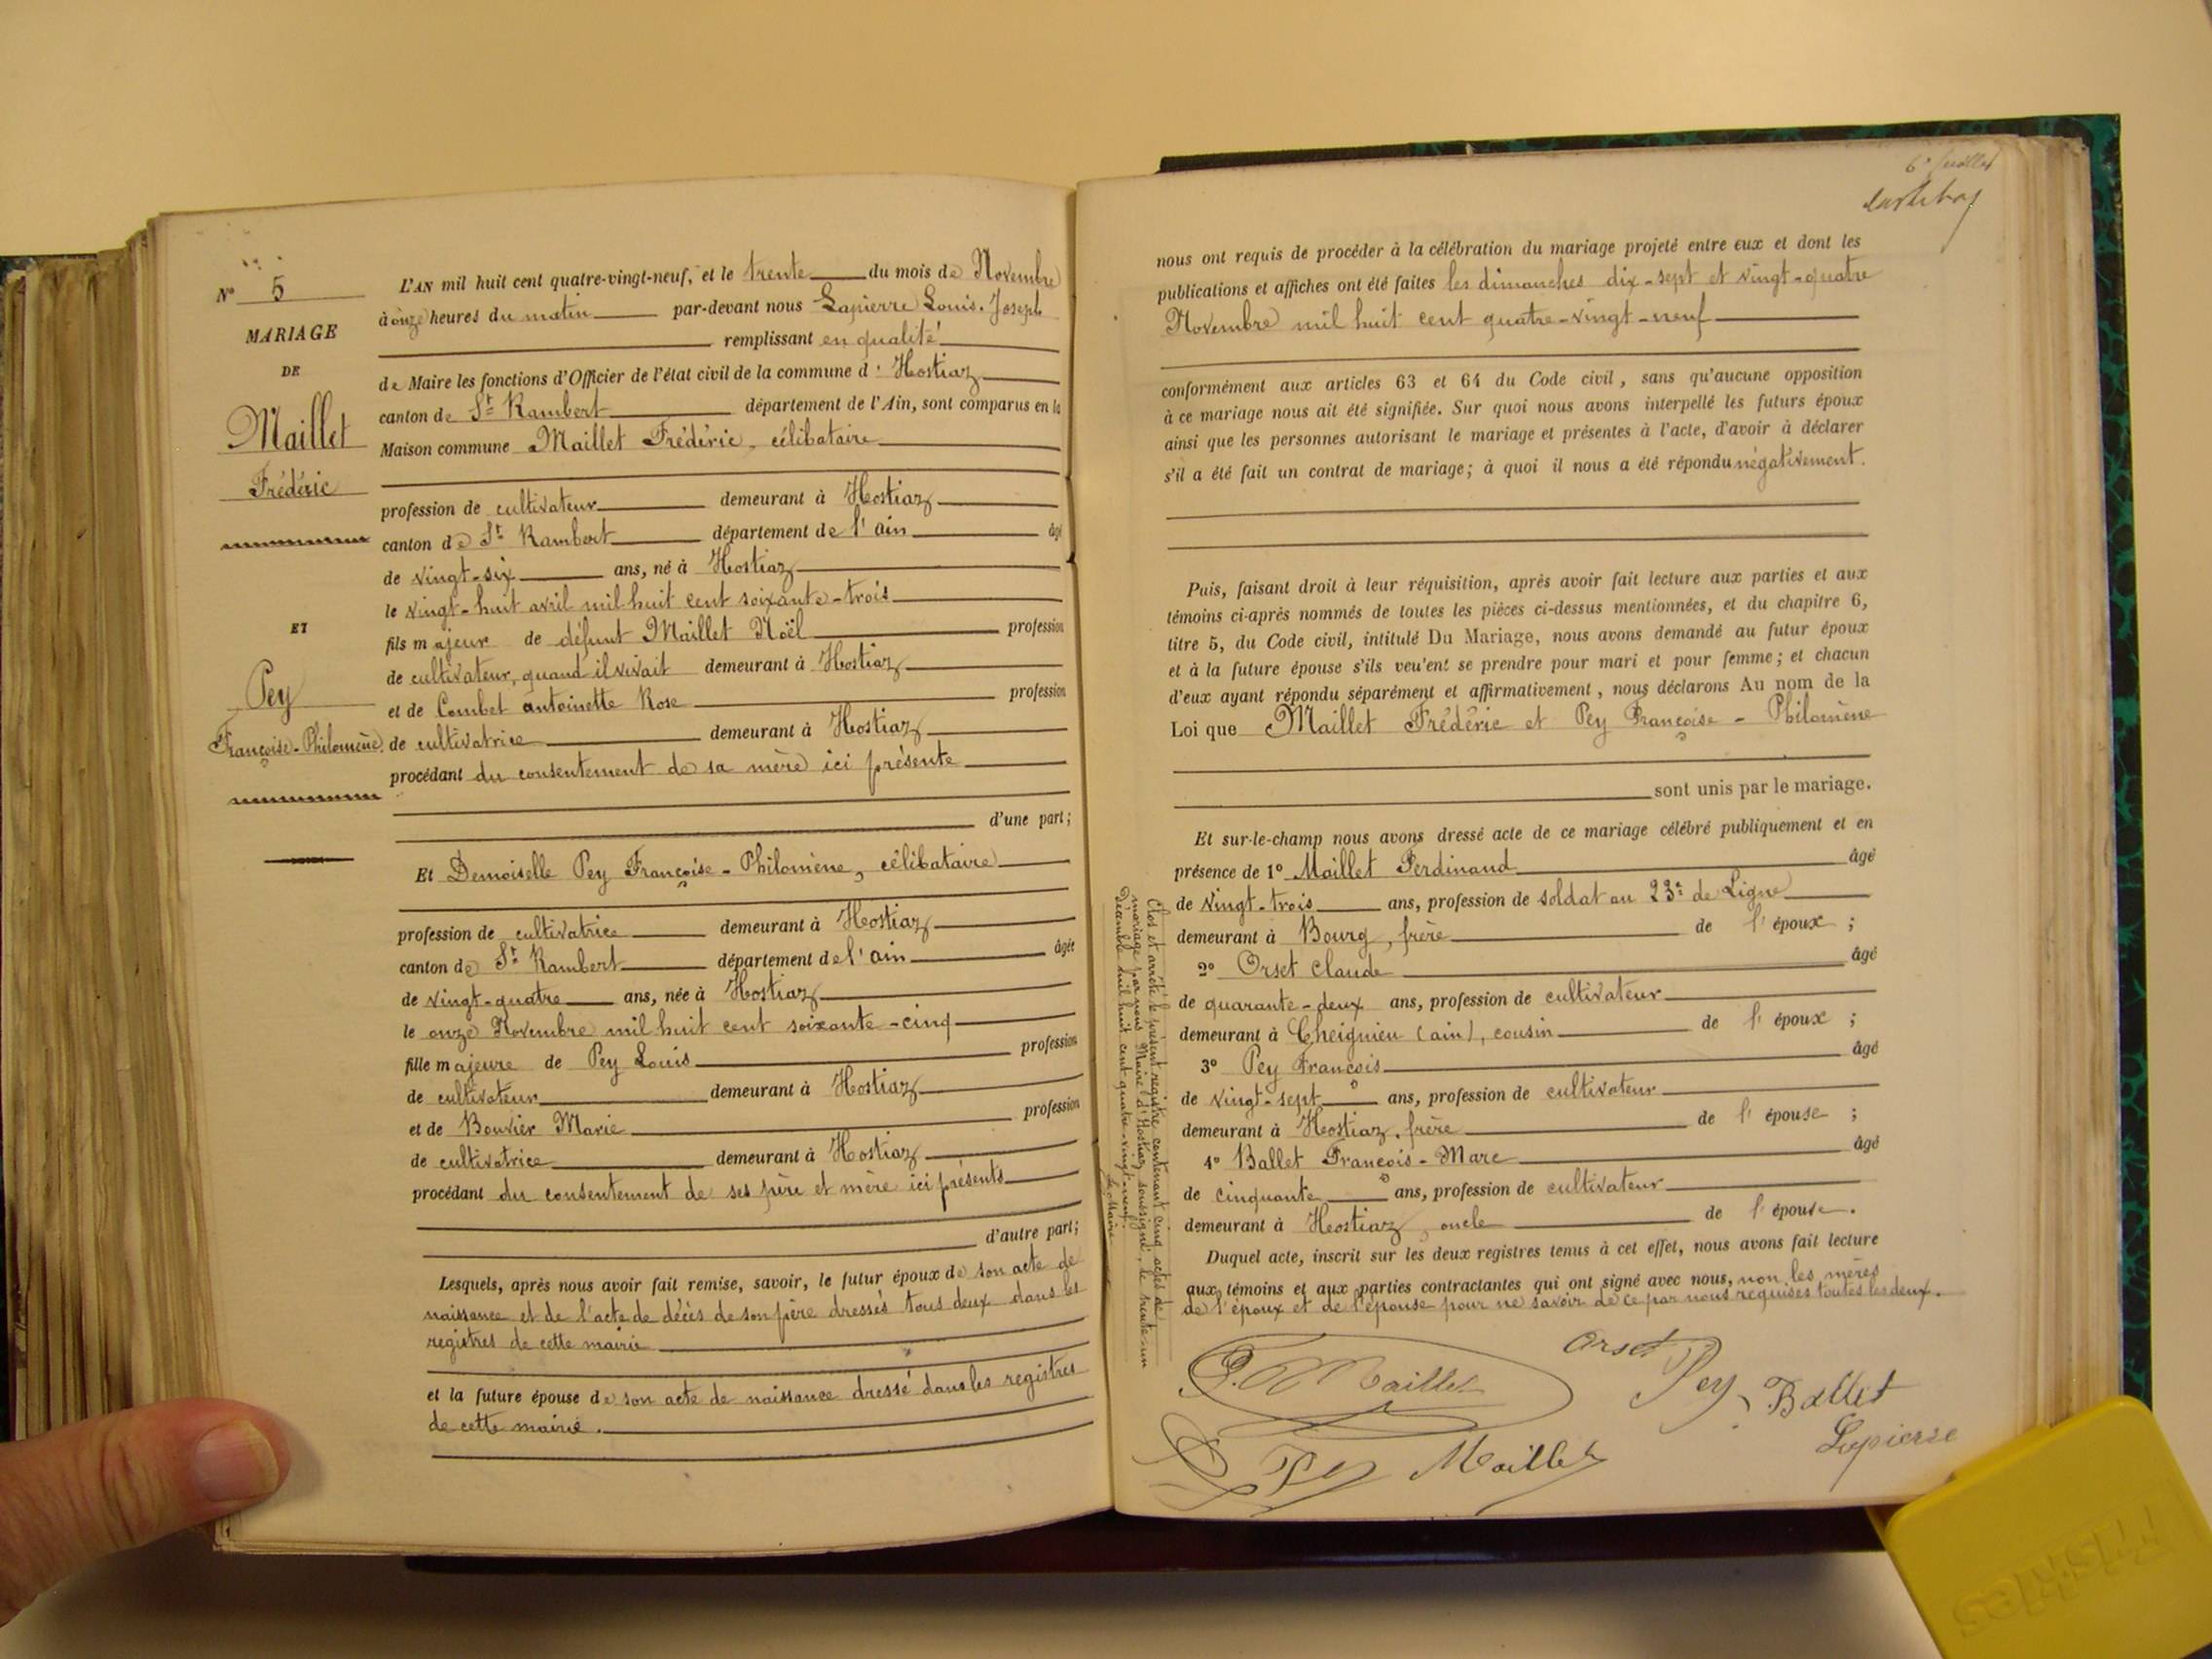 N° 5
MARIAGE
DE
Maillet
Frédéric
ET
Pey
Françoise-Philomène
L'AN mil huit cent quatre-vingt-neuf, et le trente du mois de Novembre
à onze heures du matin par-devant nous Lapierre Louis-Joseph
remplissant en qualité
de Maire les fonctions d'Officier de l'état civil de la commune d'Hostiaz
canton de St Rambert département de l'Ain, sont comparus en la
Maison commune Maillet Frédéric, célibataire
profession de cultivateur demeurant à Hostiaz
canton de St Rambert département de l'ain âgé
de vingt-six ans, né à Hostiaz
le vingt-huit avril mil huit cent soixante-trois
fils majeur de défunt Maillet Noël profession
de cultivateur, quand il vivait demeurant à Hostiaz
et de Combet antoinette Rose profession
de cultivatrice demeurant à Hostiaz
procédant du consentement de sa mère ici présente
d'une part;
Et Demoiselle Pey Françoise-Philomène, célibataire
profession de cultivatrice demeurant à Hostiaz
canton de St Rambert département de l'ain âgée
de vingt-quatre ans, née à Hostiaz
le onze Novembre mil huit cent soixante-cinq
fille majeure de Pey Louis profession
de cultivateur demeurant à Hostiaz
et de Bouvier Marie profession
de cultivatrice demeurant à Hostiaz
procédant du consentement de ses père et mère ici présents
d'autre part;
Lesquels, après nous avoir fait remise, savoir, le futur époux de son acte de
naissance et de l'acte de décès de son père dressés tous deux dans les
registres de cette mairie
et la future épouse de son acte de naissance dressé dans les registres
de cette mairie.
6e feuillet
nous ont requis de procéder à la célébration du mariage projeté entre eux et dont les
publications et affiches ont été faites les dimanches dix-sept et vingt-quatre
Novembre mil huit cent quatre-vingt-neuf
conformément aux articles 63 et 64 du Code civil, sans qu'aucune opposition
à ce mariage nous ait été signifiée. Sur quoi nous avons interpellé les futurs époux
ainsi que les personnes autorisant le mariage et présentes à l'acte, d'avoir à déclarer
s'il a été fait un contrat de mariage; à quoi il nous a été répondu négativement.
Puis, faisant droit à leur réquisition, après avoir fait lecture aux parties et aux
témoins ci-après nommés de toutes les pièces ci-dessus mentionnées, et du chapitre 6,
titre 5, du Code civil, intitulé Du Mariage, nous avons demandé au futur époux
et à la future épouse s'ils veu'ent se prendre pour mari et pour femme; et chacun
d'eux ayant répondu séparément et affirmativement, nous déclarons Au nom de la
Loi que Maillet Frédéric et Pey Françoise-Philomène
sont unis par le mariage.
Et sur-le-champ nous avons dressé acte de ce mariage célébré publiquement et en
présence de 1° Maillet Ferdinand âgé
de vingt-trois ans, profession de soldat au 23e de Ligne
demeurant à Bourg, frère de l'époux;
2° Orset Claude âgé
de quarante-deux ans, profession de cultivateur
demeurant à Cheignieu (ain), cousin de l'époux;
3° Pey François âgé
de vingt-sept ans, profession de cultivateur
demeurant à Hostiaz, frère de l'épouse;
4° Ballet François-Marc âgé
de cinquante ans, profession de cultivateur
demeurant à Hostiaz, oncle de l'épouse.
Duquel acte, inscrit sur les deux registres tenus à cet effet, nous avons fait lecture
aux témoins et aux parties contractantes qui ont signé avec nous, non les mères
de l'époux et de l'épouse pour ne savoir de ce par nous requises toutes les deux.
Clos et arrêté le présent registre contenant cinq actes de
mariage par nous Maire d'Hostiaz soussigné, le trente-un
décembre mil huit cent quatre-vingt-neuf.
Le Maire
F. Maillet
Orset
Pey
Ballet
Pey
Maillet
Lapierre
Friskies